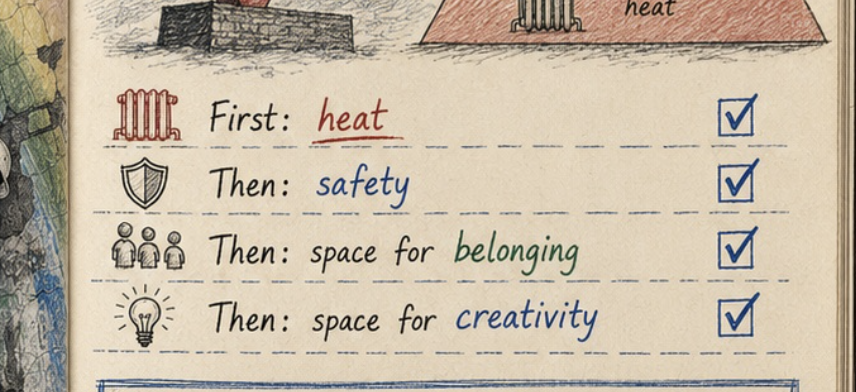 heat
First: heat
Then: safety
Then: space for belonging
Then: space for creativity